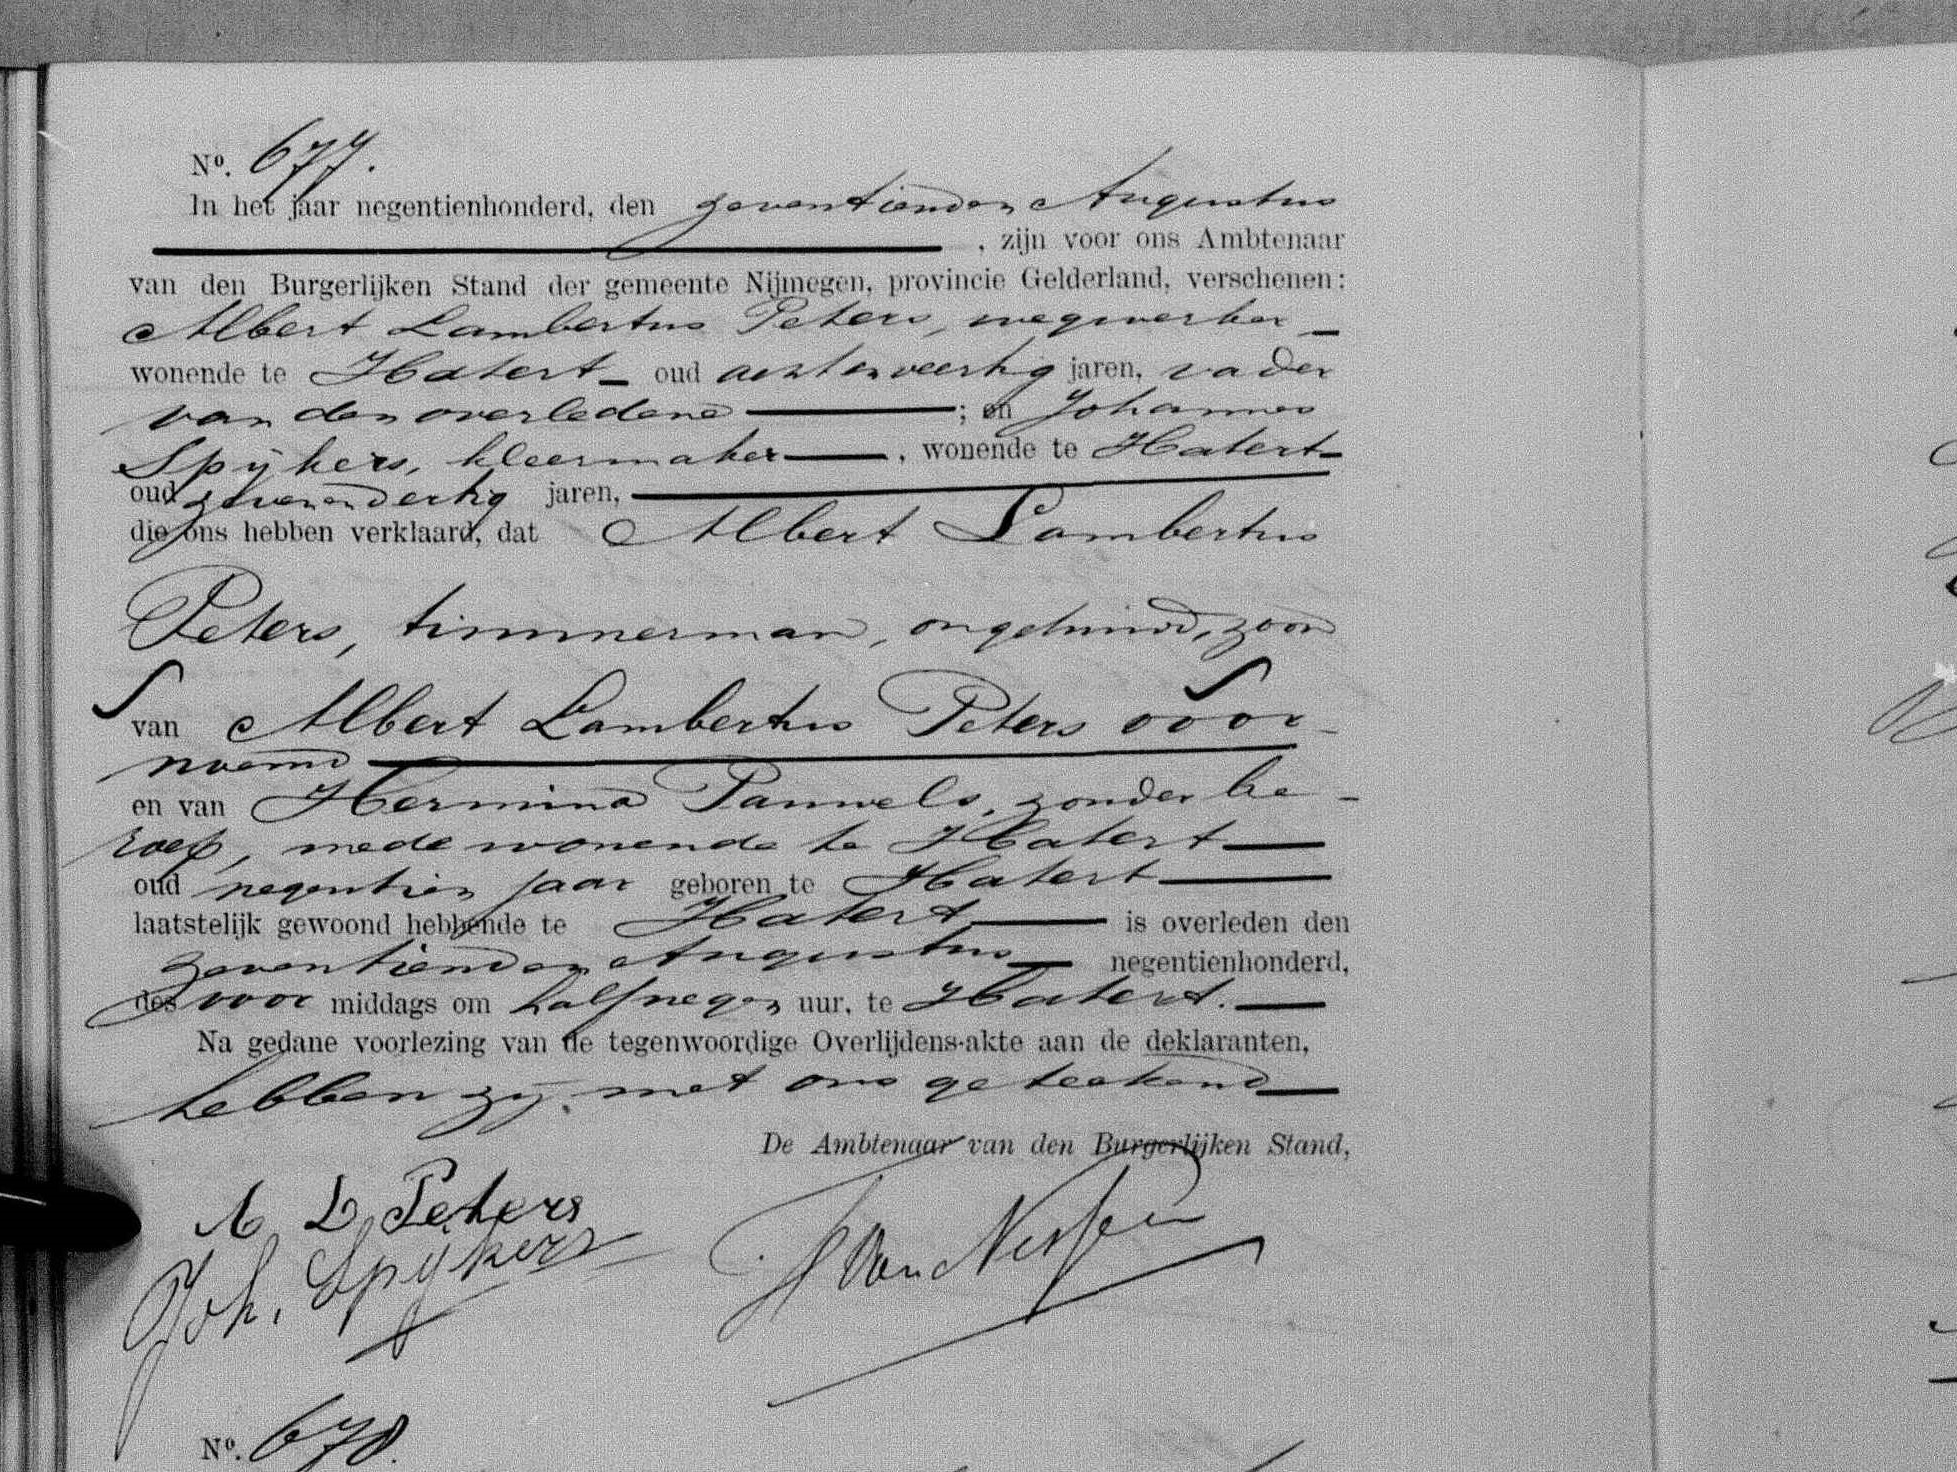 Nº. 677.
In het jaar negentienhonderd, den zeventienden Augustus
, zijn voor ons Ambtenaar
van den Burgerlijken Stand der gemeente Nijmegen, provincie Gelderland, verschenen:
Albert Lambertus Peters, wegwerker
wonende te Hatert oud achtenveertig jaren, vader
van den overledene ; en Johannes
Spijkers, kleermaker , wonende te Hatert
oud zevenendertig jaren,
die ons hebben verklaard, dat Albert Lambertus
Peters, timmerman, ongehuwd, zoon
van Albert Lambertus Peters voor-
noemd
en van Hermina Pauwels, zonder be-
roep, mede wonende te Hatert
oud negentien jaar geboren te Hatert
laatstelijk gewoond hebbende te Hatert is overleden den
zeventienden Augustus negentienhonderd,
des voor middags om half negen uur, te Hatert.
Na gedane voorlezing van de tegenwoordige Overlijdens-akte aan de deklaranten,
hebben zij met ons geteekend
De Ambtenaar van den Burgerlijken Stand,
A L Peters
Joh. Spijkers
Nº. 678.